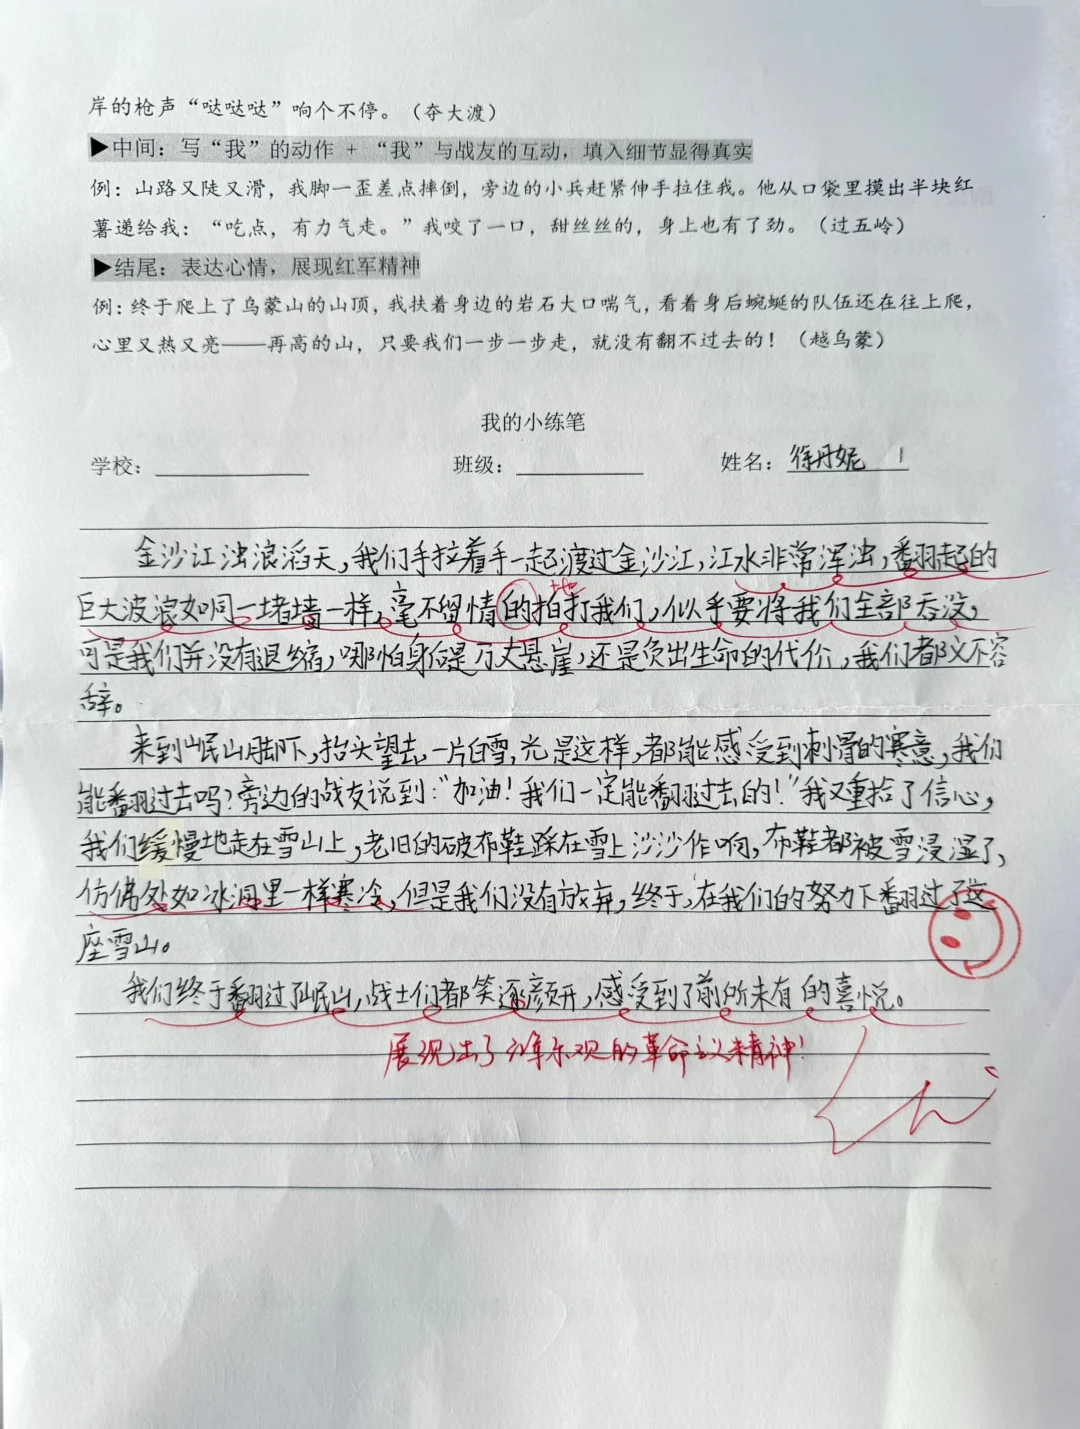 岸的枪声“哒哒哒”响个不停。（夺大渡）
▶中间：写“我”的动作 + “我”与战友的互动，填入细节显得真实
例：山路又陡又滑，我脚一歪差点摔倒，旁边的小兵赶紧伸手拉住我。他从口袋里摸出半块红
薯递给我：“吃点，有力气走。”我咬了一口，甜丝丝的，身上也有了劲。（过五岭）
▶结尾：表达心情，展现红军精神
例：终于爬上了乌蒙山的山顶，我扶着身边的岩石大口喘气，看着身后蜿蜒的队伍还在往上爬，
心里又热又亮——再高的山，只要我们一步一步走，就没有翻不过去的！（越乌蒙）
我的小练笔
学校： 班级： 姓名：徐丹妮
金沙江浊浪滔天，我们手拉着手一起渡过金沙江，江水非常浑浊，翻起的
地
巨大波浪如同一堵墙一样，毫不留情的拍打我们，似乎要将我们全部吞没，
可是我们并没有退缩，哪怕身后是万丈悬崖，还是负出生命的代价，我们都义不容
辞。
来到岷山脚下，抬头望去，一片白雪，光是这样，都能感受到刺骨的寒意，我们
能翻过去吗？旁边的战友说到：“加油！我们一定能翻过去的！”我又重拾了信心，
我们缓慢地走在雪山上，老旧的破布鞋踩在雪上沙沙作响，布鞋都被雪浸湿了，
仿佛处如冰洞里一样寒冷，但是我们没有放弃，终于，在我们的努力下翻过了这
座雪山。
我们终于翻过了岷山，战士们都笑逐颜开，感受到了前所未有的喜悦。
展现出了乐观的革命主义精神！